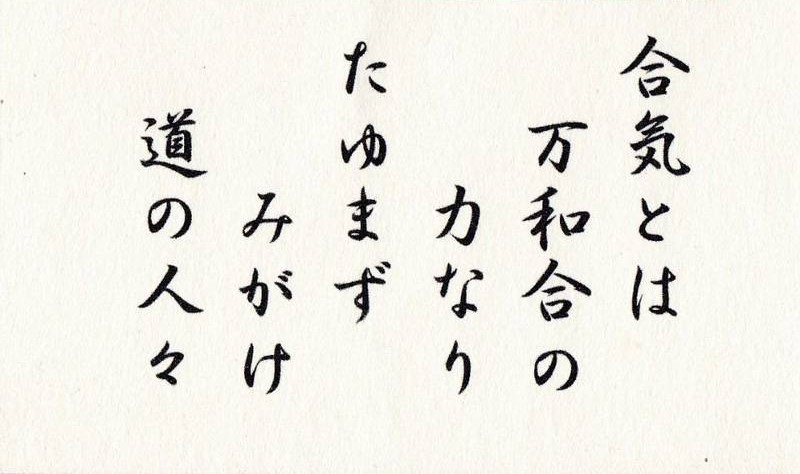 合気とは
万和合の
力なり
たゆまず
みがけ
道の人々